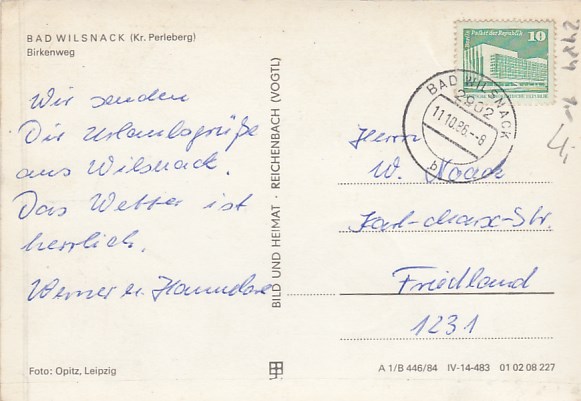 BAD WILSNACK (Kr. Perleberg)
Birkenweg
Wir senden
Dir Urlaubsgrüße
aus Wilsnack.
Das Wetter ist
herrlich.
Werner u. Hannelore
Foto: Opitz, Leipzig
BILD UND HEIMAT · REICHENBACH (VOGTL)
10
Palast der Republik
BAD WILSNACK
2902
11.10.86.-8
b
Herrn
W. Noack
Karl-Marx-Str.
Friedland
1231
A 1/B 446/84 IV-14-483 01 02 08 227